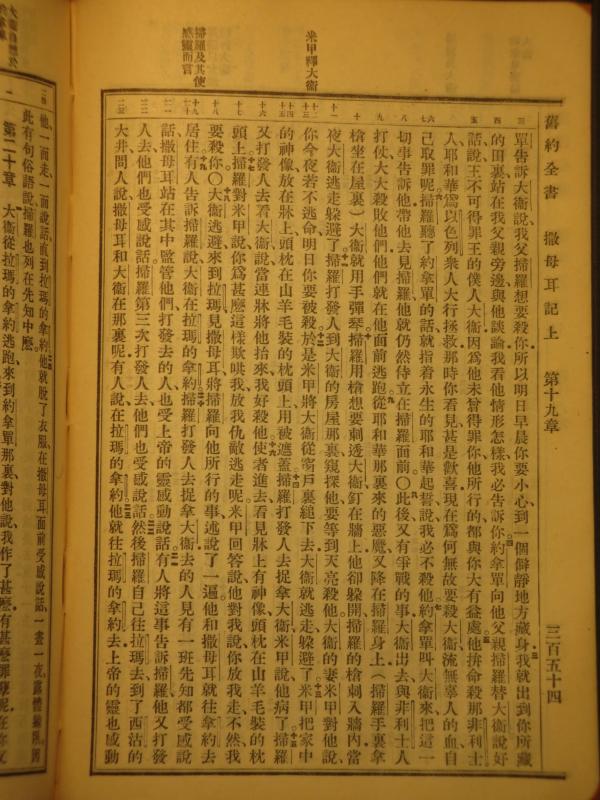 舊約全書　撒母耳記上　第十九章　三百五十四
單告訴大衞說我父掃羅想要殺你所以明日早晨你要小心到一個僻靜地方藏身我就出到你所藏
的田裏站在我父親旁邊與他談論我看他情形怎樣我必告訴你約拿單向他父親掃羅替大衞說好
話說王不可得罪王的僕人大衞因爲他未嘗得罪你他所行的都與你大有益處他拚命殺那非利士
人耶和華爲以色列衆人大行拯救那時你看見甚是歡喜現在爲何無故要殺大衞流無辜人的血自
己取罪呢掃羅聽了約拿單的話就指着永生的耶和華起誓說我必不殺他約拿單叫大衞來把這一
切事告訴他帶他去見掃羅他就仍然侍立在掃羅面前〇此後又有爭戰的事大衞出去與非利士人
打仗大大殺敗他們他們就在他面前逃跑從耶和華那裏來的惡魔又降在掃羅身上（掃羅手裏拿
槍坐在屋裏）大衞就用手彈琴掃羅用槍想要刺透大衞釘在牆上他卻躲開掃羅的槍刺入牆內當
夜大衞逃走躲避了掃羅打發人到大衞的房屋那裏窺探他要等到天亮殺他大衞的妻米甲對他說
你今夜若不逃命明日你要被殺於是米甲將大衞從窗戶裏縋下去大衞就逃走躲避了米甲把家中
的神像放在牀上頭枕在山羊毛裝的枕頭上用被遮蓋掃羅打發人去捉拿大衞米甲說他病了掃羅
又打發人去看大衞說當連牀將他抬來我好殺他使者進去看見牀上有神像頭枕在山羊毛裝的枕
頭上掃羅對米甲說你爲甚麼這樣欺哄我放我仇敵逃走呢米甲回答說他對我說你放我走不然我
要殺你〇大衞逃避來到拉瑪見撒母耳將掃羅向他所行的事述說了一遍他和撒母耳就往拿約去
居住有人告訴掃羅說大衞在拉瑪的拿約掃羅打發人去捉拿大衞去的人見有一班先知都受感說
話撒母耳站在其中監管他們打發去的人也受上帝的靈感動說話有人將這事告訴掃羅他又打發
人去他們也受感說話掃羅第三次打發人去他們也受感說話然後掃羅自己往拉瑪去到了西沽的
大井問人說撒母耳和大衞在那裏呢有人說在拉瑪的拿約他就往拉瑪的拿約去上帝的靈也感動
米甲釋大衞
掃羅及其使感靈而言
他一面走一面說話直到拉瑪的拿約他就脫了衣服在撒母耳面前受感說話一晝一夜露體
此有句俗語說掃羅也列在先知中麼
第二十章　大衞從拉瑪的拿約逃跑來到約拿單那裏對他說我作了甚麼有甚麼罪孽